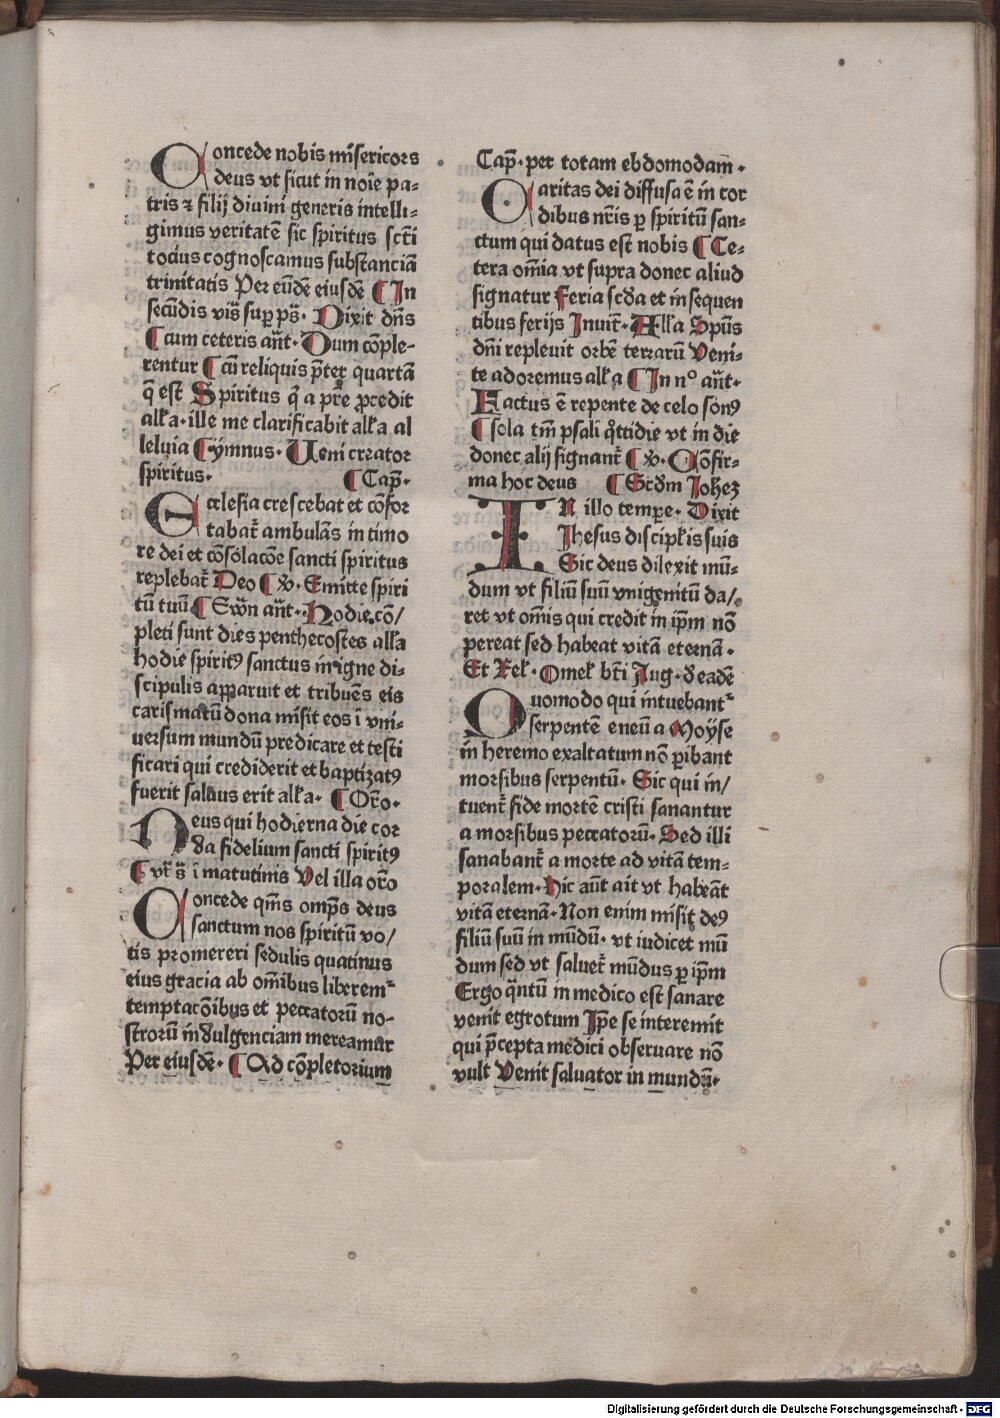 Concede nobis misericors
deus vt sicut in noīe pa⸗
tris ⁊ filij diuini generis intelli⸗
gimus veritatē sic spiritus scti
tocius cognoscamus substanciā
trinitatis Per eūdē eiusdē ¶ In
secūdis vis̄ sup ps̄. Dixit dn̄s
¶ cum ceteris an̄t. Dum cōple⸗
rentur ¶ cū reliquis p̄ter quartā
q̄ est Spiritus q̄ a pr̄e ꝓcedit
alła. ille me clarificabit alła al
leluia ¶ ymnus. Ueni creator
spiritus. ¶ Cap̄.
Ecclesia crescebat et cōfor
tabat᷑ ambulās in timo
re dei et cōsōlacōe sancti spiritus
replebat᷑ Deo ¶ v̄. Emitte spiri
tū tuū ¶ Ewn̄ an̄t. Hodie cō/
pleti sunt dies penthecostes alła
hodie spiritꝰ sanctus in igne di⸗
scipulis apparuit et tribuēs eis
carismatū dona misit eos ī vni⸗
uersum mundū predicare et testi
ficari qui crediderit et baptizatꝰ
fuerit saluus erit alła. ¶ Or̄o.
Deus qui hodierna die cor
da fidelium sancti spiritꝰ
¶ vt᷑ s̄ ī matutinis Vel illa or̄o
Concede qm̄s omp̄s deus
sanctum nos spiritū vo/
tis promereri sedulis quatinus
eius gracia ab om̄ibus liberem᷑
temptacōibus et peccatorū no⸗
strorū indulgenciam mereamur
Per eiusdē. ¶ Ad cōpletorium
Cap̄. per totam ebdomodam̄.
Caritas dei diffusa ē in cor
dibus nr̄is ꝑ spiritū san⸗
ctum qui datus est nobis ¶ Ce⸗
tera om̄ia vt supra donec aliud
signatur Feria scd̄a et in sequen
tibus ferijs Inuit̄. Alła Spūs
dn̄i repleuit orbē terrarū Veni⸗
te adoremus alła ¶ In n° an̄t.
Factus ē repente de celo sonꝰ
¶ sola tm̄ psali q̊ttidie vt in die
donec alij signant᷑ ¶ v̄. Cōfir⸗
ma hoc deus ¶ Scd̄m Joħez
IN illo tempe. Dixit
Jhesus discipłis suis
Sic deus dilexit mū⸗
dum vt filiū suū vnigenitū da/
ret vt om̄is qui credit in ip̄m nō
pereat sed habeat vitā eternā.
Et Rel̄. Omel̄ bt̄i Aug. d̓ eadē
Quomodo qui intuebant᷑
serpentē eneū a Moÿse
in heremo exaltatum nō ꝑibant
morsibus serpentū. Sic qui in/
tuent᷑ fide mortē cristi sanantur
a morsibus peccatorū. Sed illi
sanabant᷑ a morte ad vitā tem⸗
poralem. Hic aūt ait vt habeāt
vitā eternā. Non enim misit deꝰ
filiū suū in mūdū. vt iudicet mū
dum sed vt saluet᷑ mūdus ꝑ ip̄m
Ergo q̄ntū in medico est sanare
venit egrotum Ip̄e se interemit
qui p̄cepta medici obseruare nō
vult Venit saluator in mundū.
Digitalisierung gefördert durch die Deutsche Forschungsgemeinschaft - DFG